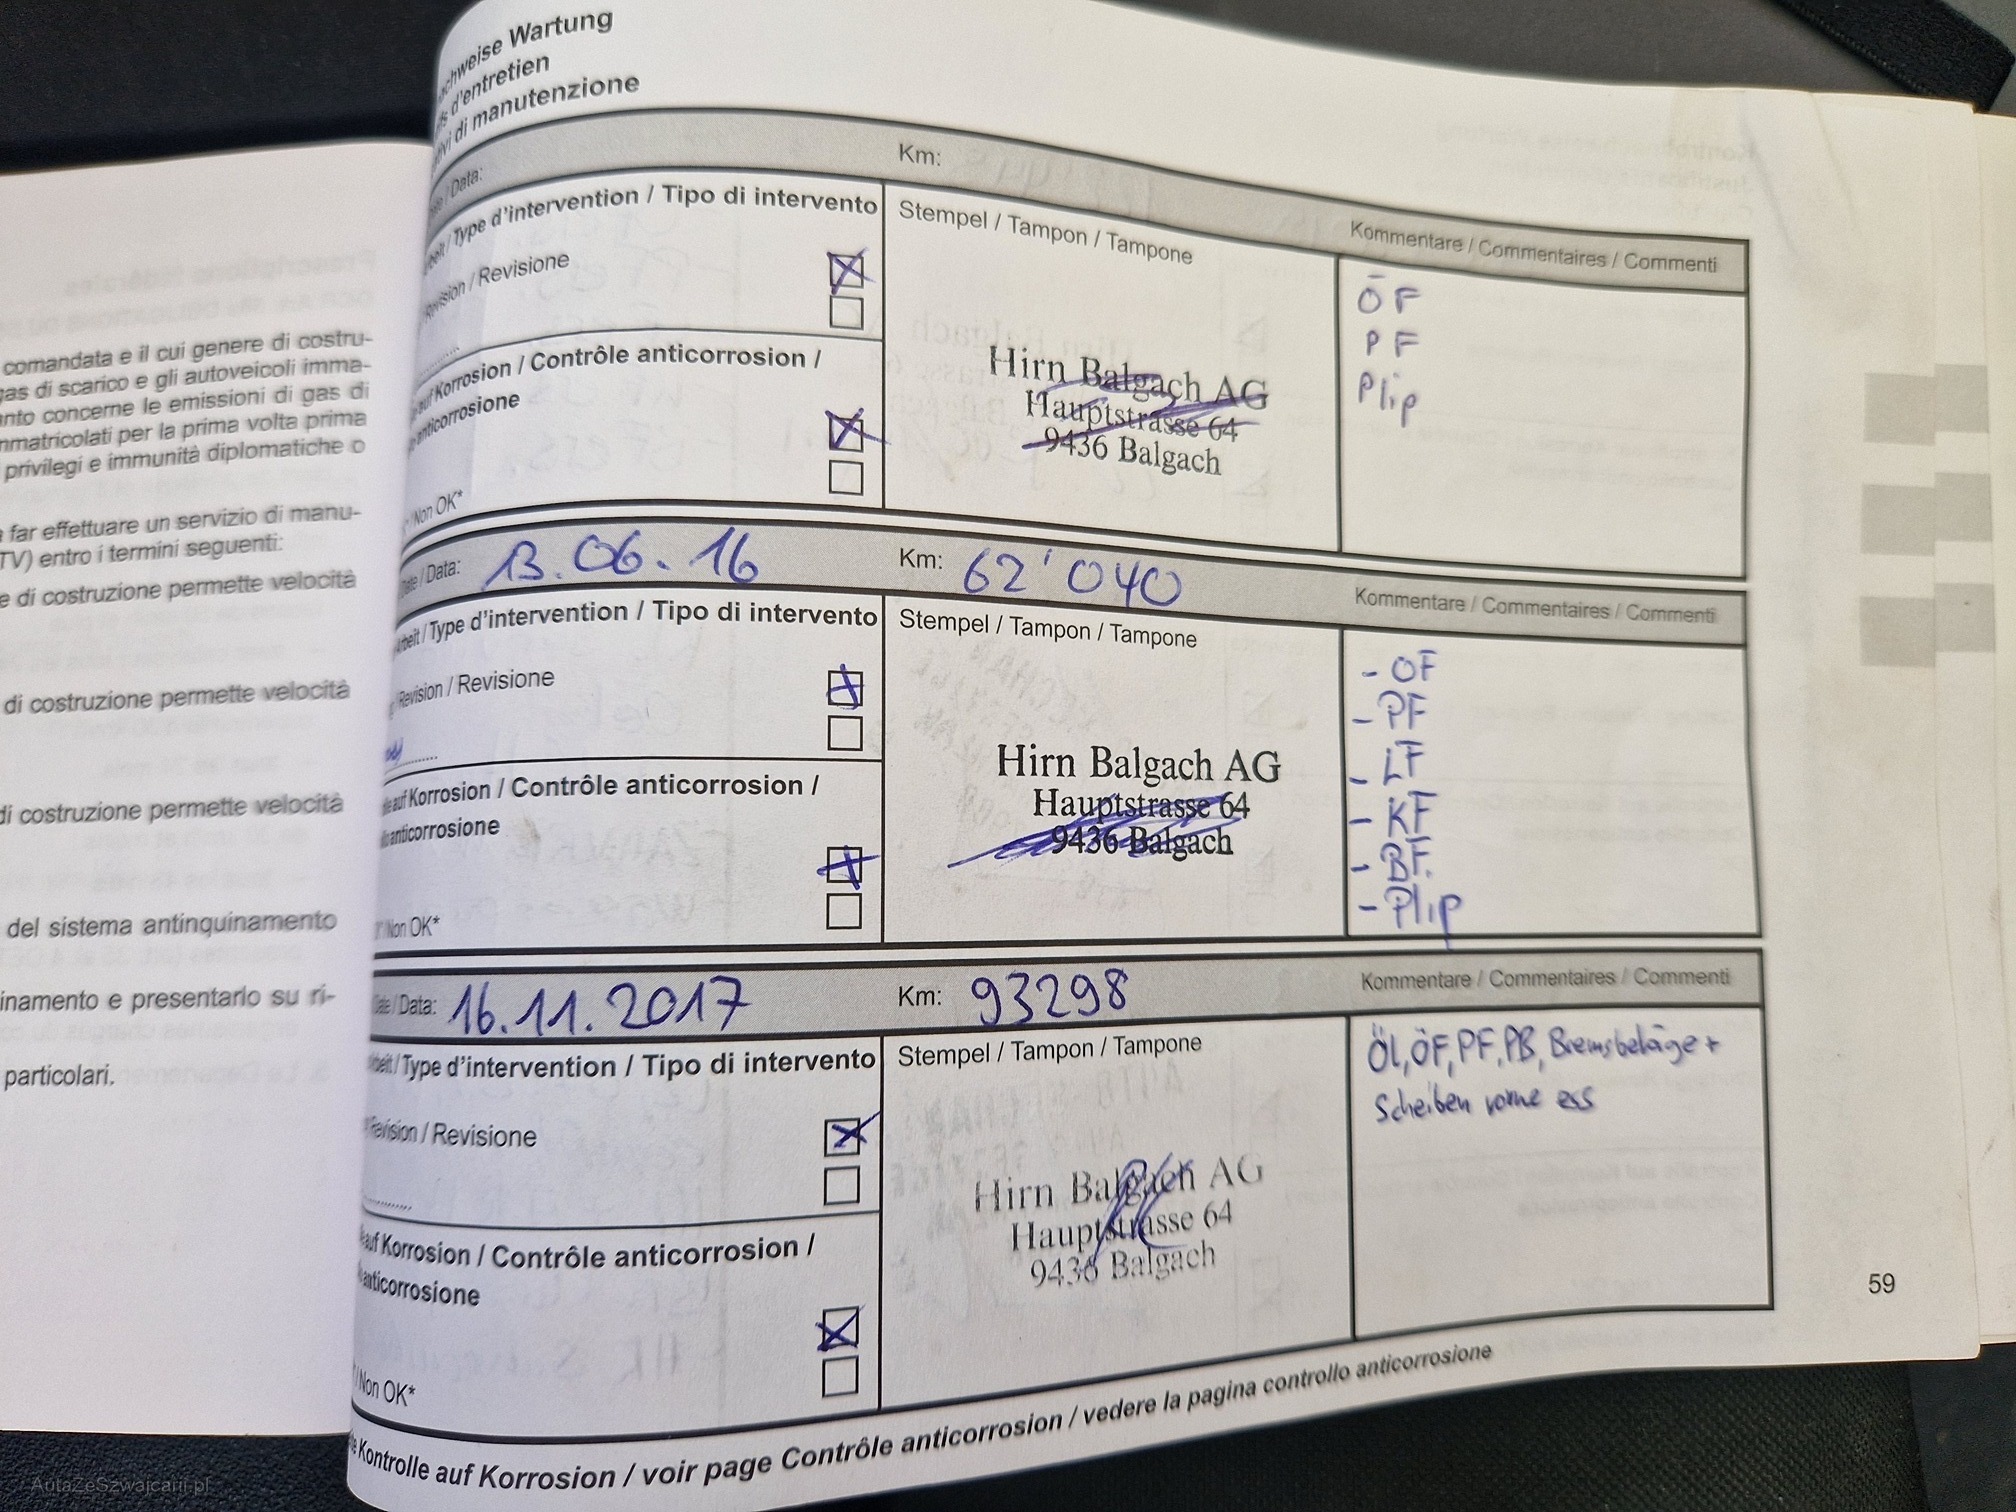 comandata e il cui genere di costru-
gas di scarico e gli autoveicoli imma-
anto concerne le emissioni di gas di
nmatricolati per la prima volta prima
privilegi e immunità diplomatiche o
far effettuare un servizio di manu-
TV) entro i termini seguenti:
e di costruzione permette velocità
di costruzione permette velocità
di costruzione permette velocità
del sistema antinquinamento
inamento e presentarlo su ri-
particolari.
chweise Wartung
d'entretien
ivi di manutenzione
/ Data:
Km:
/ Type d'intervention / Tipo di intervento
Stempel / Tampon / Tampone
Kommentare / Commentaires / Commenti
Revision / Revisione
ÖF
PF
Plip
Hirn Balgach AG
Hauptstrasse 64
9436 Balgach
auf Korrosion / Contrôle anticorrosion /
anticorrosione
/ Non OK*
/ Data: 13.06.16
Km: 62'040
Arbeit / Type d'intervention / Tipo di intervento
Stempel / Tampon / Tampone
Kommentare / Commentaires / Commenti
Revision / Revisione
- ÖF
- PF
- LF
- KF
- BF.
- Plip
Hirn Balgach AG
Hauptstrasse 64
9436 Balgach
auf Korrosion / Contrôle anticorrosion /
anticorrosione
/ Non OK*
/ Data: 16.11.2017
Km: 93298
/ Type d'intervention / Tipo di intervento
Stempel / Tampon / Tampone
Kommentare / Commentaires / Commenti
Revision / Revisione
Öl, ÖF, PF, PB, Bremsbeläge +
Scheiben vorne ess
Hirn Balgach AG
Hauptstrasse 64
9436 Balgach
auf Korrosion / Contrôle anticorrosion /
anticorrosione
/ Non OK*
Kontrolle auf Korrosion / voir page Contrôle anticorrosion / vedere la pagina controllo anticorrosione
59
AutaZeSzwajcarii.pl